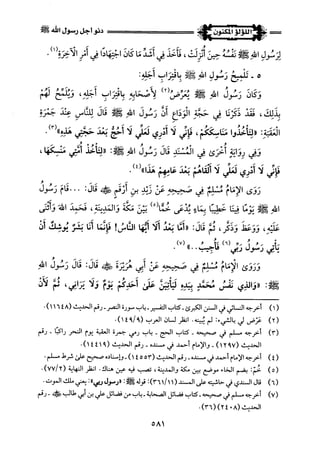 دنو أجل رسول الله ﷺ
اللؤلؤ المكنون
لِرَسُولِ اللهِ ﷺ نَفْسُهُ حِينَ أُنْزِلَتْ، فَأَخَذَ فِي أَشَدِّ مَا كَانَ اجْتِهَادًا فِي أَمْرِ الْآخِرَةِ(١).
٥ ـ تَلْمِيحُ رَسُولِ اللهِ ﷺ بِاقْتِرَابِ أَجَلِهِ:
وَكَانَ رَسُولُ اللهِ ﷺ يُعَرِّضُ(٢) لِأَصْحَابِهِ بِاقْتِرَابِ أَجَلِهِ، وَيُلَمِّحُ لَهُمْ
بِذَلِكَ، فَقَدْ ذَكَرْنَا فِي حَجَّةِ الْوَدَاعِ أَنَّ رَسُولَ اللهِ ﷺ قَالَ لِلنَّاسِ عِنْدَ جَمْرَةِ
الْعَقَبَةِ: «لِتَأْخُذُوا مَنَاسِكَكُمْ، فَإِنِّي لَا أَدْرِي لَعَلِّي لَا أَحُجُّ بَعْدَ حَجَّتِي هَذِهِ»(٣).
وَفِي رِوَايَةٍ أُخْرَى فِي الْمُسْنَدِ قَالَ رَسُولُ اللهِ ﷺ: «لِتَأْخُذْ أُمَّتِي مَنْسَكَهَا،
فَإِنِّي لَا أَدْرِي لَعَلِّي لَا أَلْقَاهُمْ بَعْدَ عَامِهِمْ هَذَا»(٤).
رَوَى الْإِمَامُ مُسْلِمٌ فِي صَحِيحِهِ عَنْ زَيْدِ بْنِ أَرْقَمَ ﷺ قَالَ: ... قَامَ رَسُولُ
اللهِ ﷺ يَوْمًا فِينَا خَطِيبًا بِمَاءٍ يُدْعَى خُمًّا(٥) بَيْنَ مَكَّةَ وَالْمَدِينَةِ، فَحَمِدَ اللهَ وَأَثْنَى
عَلَيْهِ، وَوَعَظَ وَذَكَّرَ، ثُمَّ قَالَ: «أَمَّا بَعْدُ أَلَا أَيُّهَا النَّاسُ! فَإِنَّمَا أَنَا بَشَرٌ يُوشِكُ أَنْ
يَأْتِيَ رَسُولُ رَبِّي(٦) فَأُجِيبَ..»(٧).
وَرَوَى الْإِمَامُ مُسْلِمٌ فِي صَحِيحِهِ عَنْ أَبِي هُرَيْرَةَ ﷺ قَالَ: قَالَ رَسُولُ اللهِ
ﷺ: «وَالَّذِي نَفْسُ مُحَمَّدٍ بِيَدِهِ لَيَأْتِيَنَّ عَلَى أَحَدِكُمْ يَوْمٌ وَلَا يَرَانِي، ثُمَّ لَأَنْ
(١) أخرجه النسائي في السنن الكبرى ـ كتاب التفسير ـ باب سورة النصر ـ رقم الحديث (١١٦٤٨).
(٢) عرَّض لي بالشيء: لم يُبينه. انظر لسان العرب (١٤٩/٩).
(٣) أخرجه مسلم في صحيحه ـ كتاب الحج ـ باب رمي جمرة العقبة يوم النحر راكبًا ـ رقم
الحديث (١٢٩٧) ـ والإمام أحمد في مسنده ـ رقم الحديث (١٤٤١٩).
(٤) أخرجه الإمام أحمد في مسنده ـ رقم الحديث (١٤٥٥٣) ـ وإسناده صحيح على شرط مسلم.
(٥) خُمّ: بضم الخاء موضع بين مكة والمدينة، تصب فيه عين هناك. انظر النهاية (٧٧/٢).
(٦) قال السندي في حاشيته على المسند (٣٦١/١١): قوله ﷺ: «رسول ربي»: يعني ملك الموت.
(٧) أخرجه مسلم في صحيحه ـ كتاب فضائل الصحابة ـ باب من فضائل علي بن أبي طالب ﷺ ـ رقم
الحديث (٢٤٠٨) (٣٦).
٥٨١